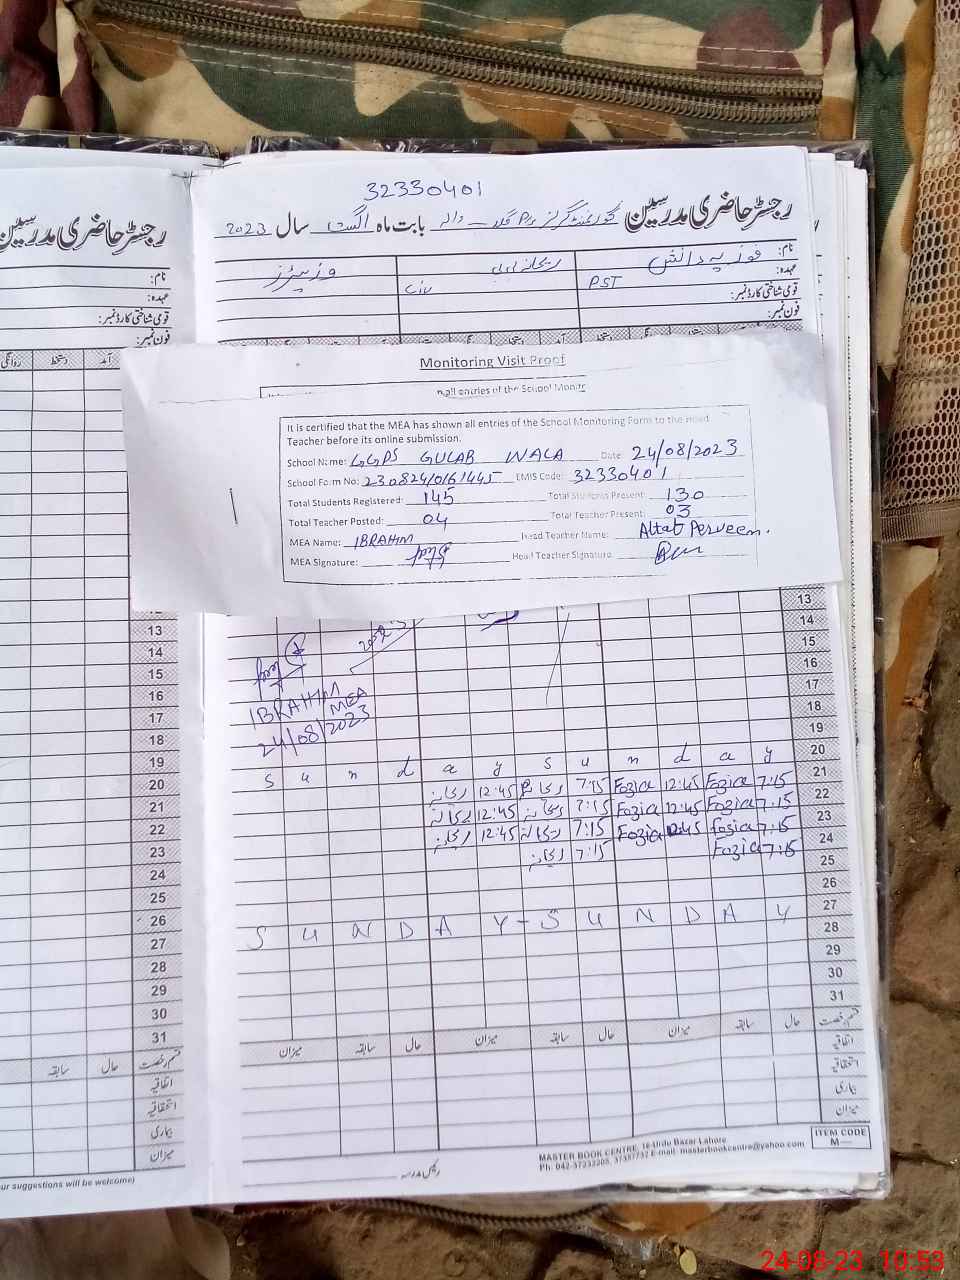 32330401
رجسٹر حاضری مدرسین گورنمنٹ گرلز پر/ گلاب والہ بابت ماہ اگست سال 2023
رجسٹر حاضری مدرسین
نام: فوزیہ دانش
وزیٹرز
عہدہ: PST
قومی شناختی کارڈ نمبر:
فون نمبر:
نام:
عہدہ:
قومی شناختی کارڈ نمبر:
فون نمبر:
آمد دستخط روانگی
Monitoring Visit Proof
all entries of the School Monitor
It is certified that the MEA has shown all entries of the School Monitoring Form to the Head
Teacher before its online submission.
School Name: GGPS GULAB WALA Date: 24/08/2023
School Form No: 230824/0161445 EMIS Code: 32330401
Total Students Registered: 145 Total Students Present: 130
Total Teacher Posted: 04 Total Teacher Present: 03
MEA Name: IBRAHIM Head Teacher Name: Altaf Perveen.
MEA Signature: Head Teacher Signature
13
14
15
16
17
IBRAHIM
MEA
18
24/08/2023
19
20
S u n d a y S u n d a y
21
ریحانہ 12:45 ریحانہ 7:15 Fozia 12:45 Fozia 7:15
22
ریحانہ 12:45 ریحانہ 7:15 Fozia 12:45 Fozia 7:15
23
ریحانہ 12:45 ریحانہ 7:15 Fozia 12:45 Fozia 7:15
24
ریحانہ 7:15 Fozia 7:15
25
26
27
S U N D A Y - S U N D A Y
28
29
30
31
قسم رخصت حال سابقہ میزان حال سابقہ میزان حال سابقہ میزان
اتفاقیہ
استحقاقیہ
بیماری
میزان
13
14
15
16
17
18
19
20
21
22
23
24
25
26
27
28
29
30
31
قسم رخصت حال سابقہ
اتفاقیہ
استحقاقیہ
بیماری
میزان
رئیس مدرسہ
MASTER BOOK CENTRE, 16-Urdu Bazar Lahore
Ph: 042-37232205, 37357732 E-mail: masterbookcentre@yahoo.com
ITEM CODE
M—
ur suggestions will be welcome)
24-08-23 10:53